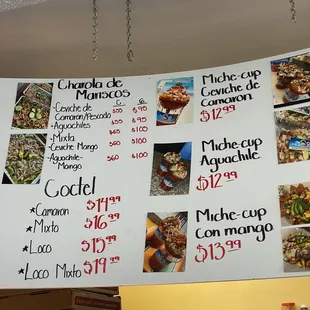 Charola de
Mariscos
C G
-Ceviche de
Camaron/Pescado $55 $95
-Aguachiles $55 $95
-Mixta $65 $100
Ceviche Mango $60 $100
-Aguachile-
Mango $60 $100
Coctel
*Camaron $14.99
*Mixto $16.99
*Loco $15.99
*Loco Mixto $19.99
Miche-cup
Ceviche de
Camaron
$12.99
Miche-cup
Aguachile
$12.99
Miche-cup
Con mango
$13.99